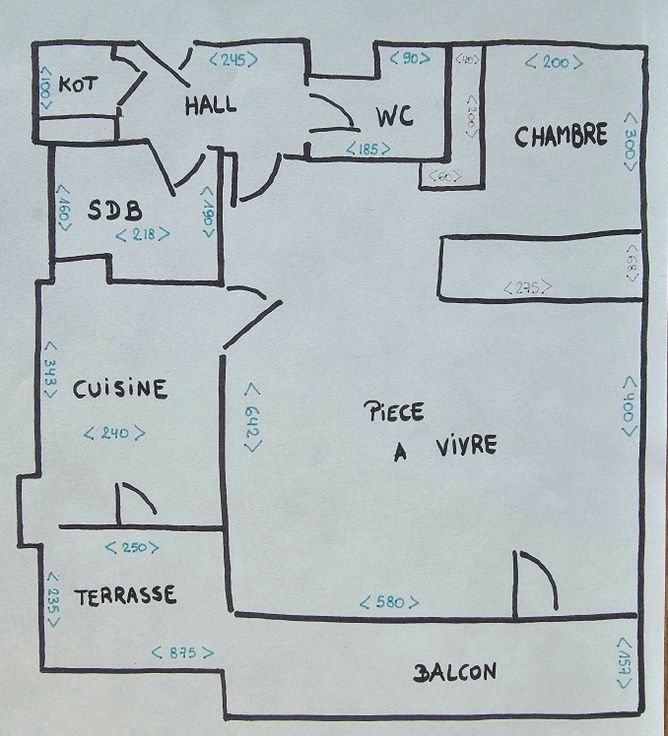 <245>
<90>
<200>
KOT
<100>
HALL
WC
<200>
CHAMBRE
<300>
<185>
<60>
<160>
SDB
<190>
<218>
<68>
<275>
<343>
CUISINE
<240>
<642>
PIECE
A VIVRE
<400>
<250>
<235>
TERRASSE
<580>
<875>
BALCON
<157>